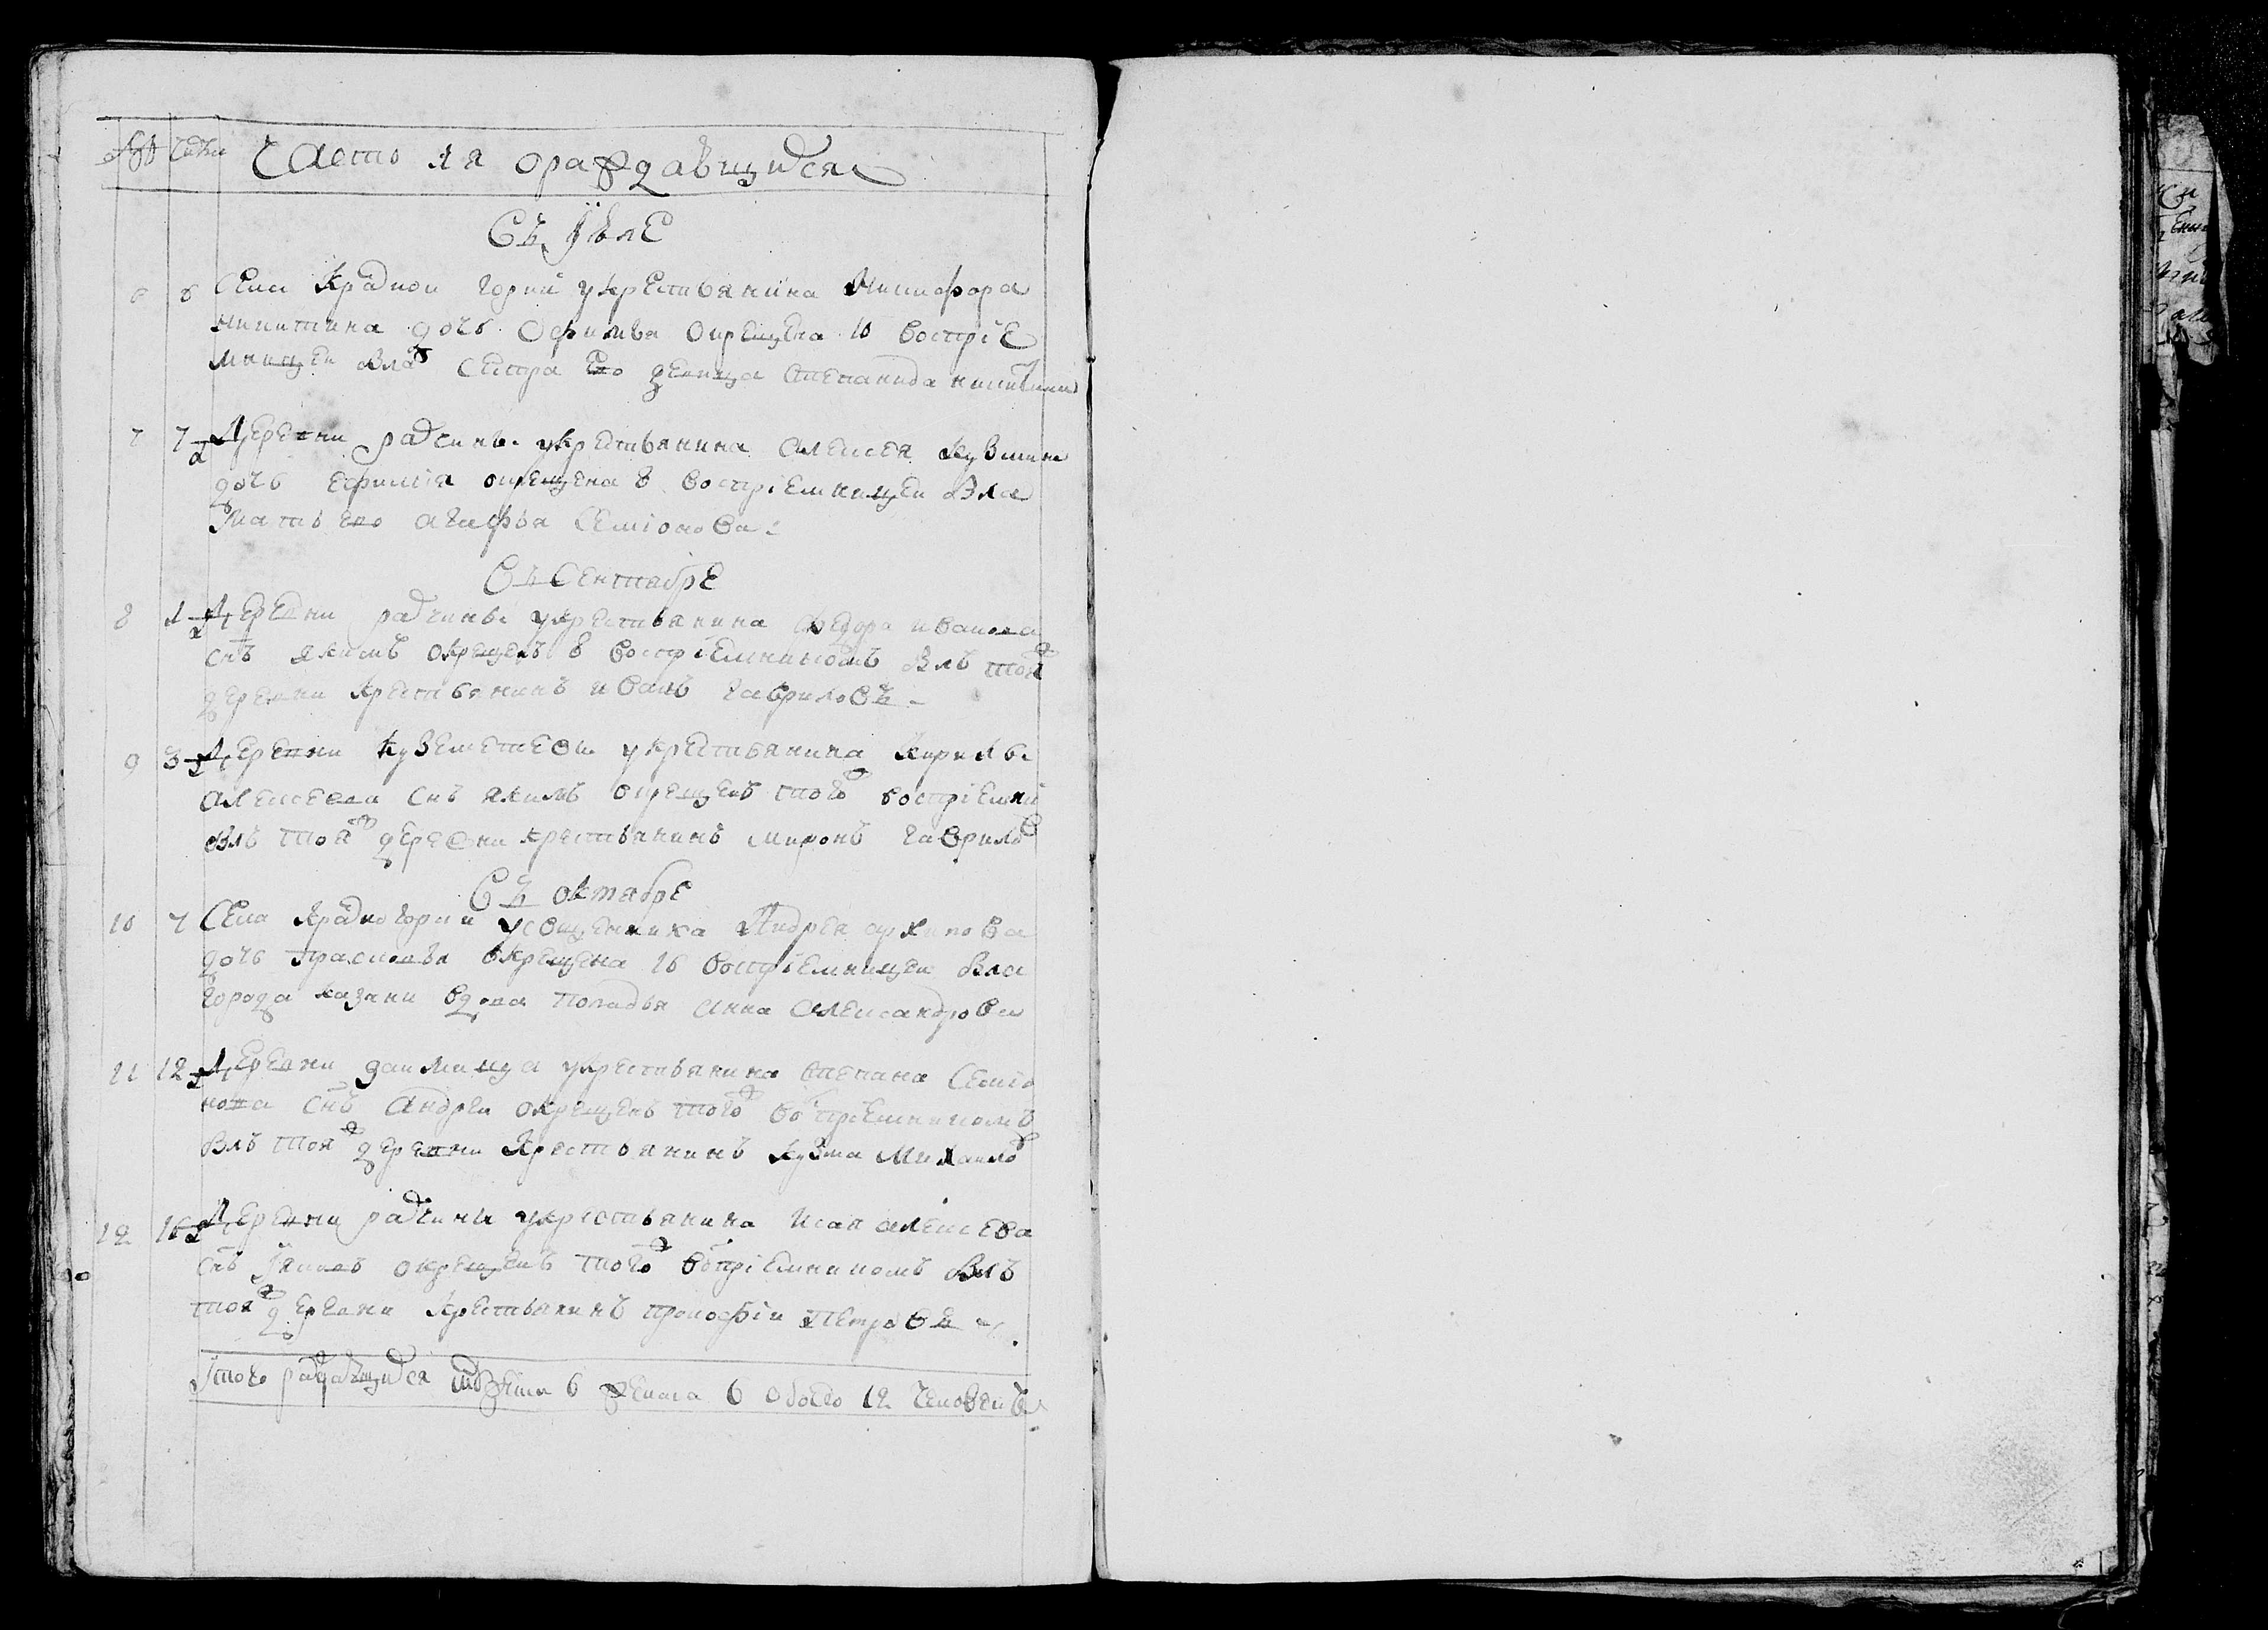 № Число Часть 1я ораждавшихся
Въ Июле
6 8 Села Красной горки у крестьянина Никифора
никитина дочь Офимья окрещена 10 воспрiе
мницеи была сестра его девица Степанида никитина
7 7 Деревни радчины у крестьянина алексея кузмина
дочь ефимiя окрещена 8 воспрiемницеи была
мать ево агафья Семiонова
Въ Сентябре
8 1 Деревни радчины у крестьянина федора иванова
снъ якимъ окрещенъ 8 воспрiемникомъ былъ тояж
деревни крестьянинъ иванъ гавриловъ
9 3 Деревни у крестьянина кирилы
алексеева снъ якимъ окрещенъ тогож воспрiемни
былъ тояж деревни крестьянинъ миронъ гаврилов
Въ октябре
10 7 Села Красногорки у священника Андрея архипова
дочь прасковья окрещена 16 воспрiемницеи была
города казани вдова попадья анна александрова
11 12 Деревни у крестьянина степана Семiо
нова снъ андреи окрещенъ тогож воспрiемникомъ
былъ тояж деревни крестьянинъ кузма михаилов
12 16 Деревни радчины у крестьянина исая алексеева
снъ якимъ окрещенъ тогож воспрiемникомъ былъ
тояж деревни крестьянинъ прокофiи петровъ
Итого раждавшихся мужеска 6 женска 6 обоего 12 человекъ